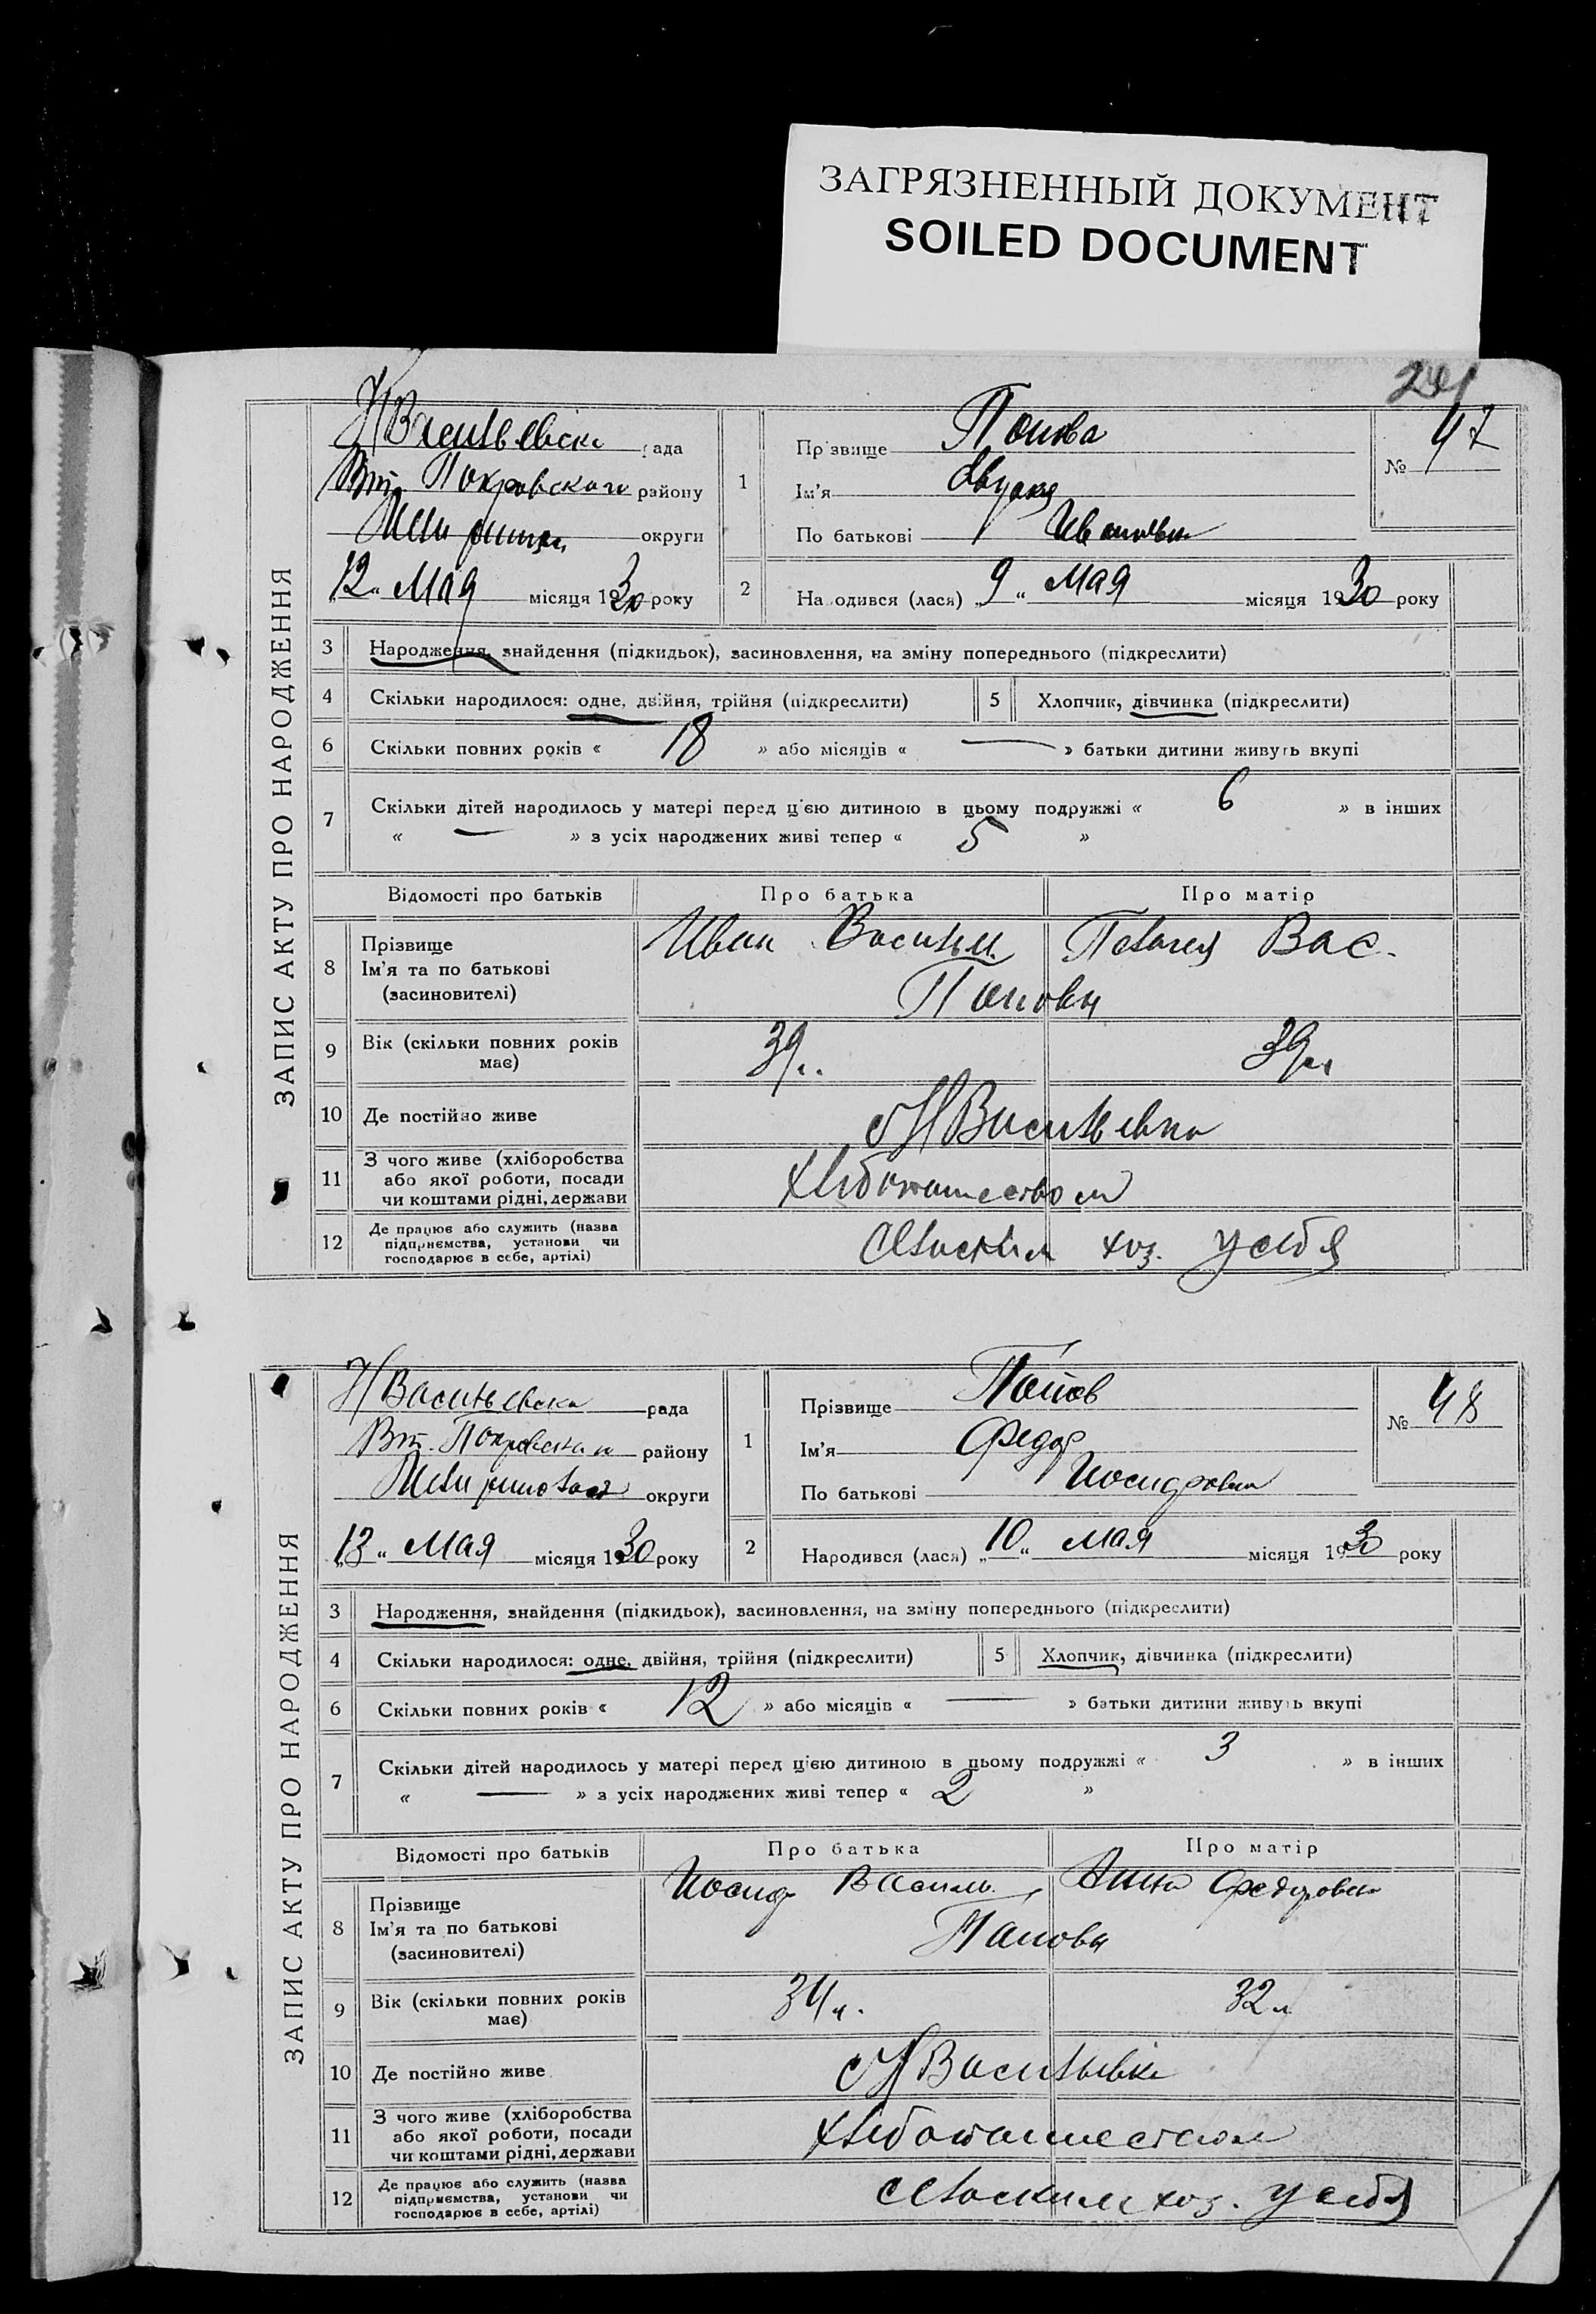 ЗАГРЯЗНЕННЫЙ ДОКУМЕНТ
SOILED DOCUMENT
ЗАПИС АКТУ ПРО НАРОДЖЕННЯ
рада
Вт. Покровского району
округи
"12" Мая місяця 1930 року
1
Прізвище Попова
Ім'я
По батькові Ивановна
№ 47
2
Народився (лася) "9" мая місяця 1930 року
3 Народження, знайдення (підкидьок), засиновлення, на зміну попереднього (підкреслити)
4 Скільки народилося: одне, двійня, трійня (підкреслити)
5 Хлопчик, дівчинка (підкреслити)
6 Скільки повних років « 18 » або місяців « — » батьки дитини живуть вкупі
7 Скільки дітей народилось у матері перед цією дитиною в цьому подружжі « 6 » в інших
« — » з усіх народжених живі тепер « 5 »
Відомості про батьків
Про батька
Про матір
8 Прізвище
Ім'я та по батькові
(засиновителі)
Иван Васильев.
Пелагея Вас.
Поповы
9 Вік (скільки повних років
має)
39 л.
39 л
10 Де постійно живе
с Н Васильевка
11 З чого живе (хліборобства
або якої роботи, посади
чи коштами рідні, держави
Хлебопашеством
12 Де працює або служить (назва
підприємства, установи чи
господарює в себе, артілі)
Сельским хоз. у себя
ЗАПИС АКТУ ПРО НАРОДЖЕННЯ
Н Васильевска рада
Вт. Покровского району
округи
"13" Мая місяця 1930 року
1
Прізвище Попов
Ім'я Федор
По батькові Иосифович
№ 48
2
Народився (лася) "10" мая місяця 1930 року
3 Народження, знайдення (підкидьок), засиновлення, на зміну попереднього (підкреслити)
4 Скільки народилося: одне, двійня, трійня (підкреслити)
5 Хлопчик, дівчинка (підкреслити)
6 Скільки повних років « 12 » або місяців « — » батьки дитини живуть вкупі
7 Скільки дітей народилось у матері перед цією дитиною в цьому подружжі « 3 » в інших
« — » з усіх народжених живі тепер « 2 »
Відомості про батьків
Про батька
Про матір
8 Прізвище
Ім'я та по батькові
(засиновителі)
Иосиф Васильев.
Анна Федоровна
Поповы
9 Вік (скільки повних років
має)
34 л.
32 л
10 Де постійно живе
с Н Васильевка
11 З чого живе (хліборобства
або якої роботи, посади
чи коштами рідні, держави
Хлебопашеством
12 Де працює або служить (назва
підприємства, установи чи
господарює в себе, артілі)
Сельским хоз. у себя